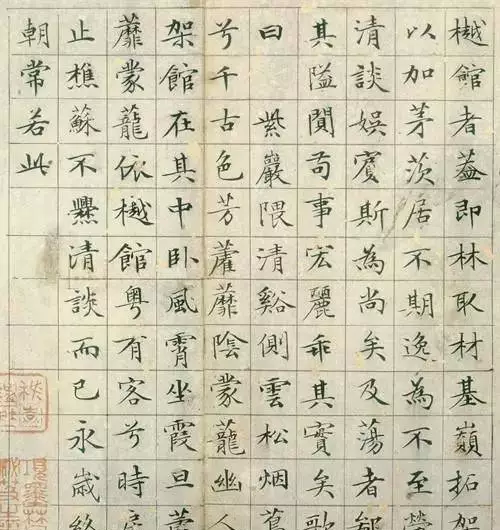 樾館者葢即林取材基巔拓架
以加茅茨居不期逸為不至
清談娛賓斯為尚矣及蕩者鄙
其隘閴苟事宏麗乖其實矣歌
曰紫巖隈清谿側雲松烟
兮千古色芳藿蘼陰蒙蘢幽人
架館在其中卧風霄坐霞旦
蘼蒙蘢依樾館粵有客兮時
止樵蘇不爨清談而已永歳終
朝常若此